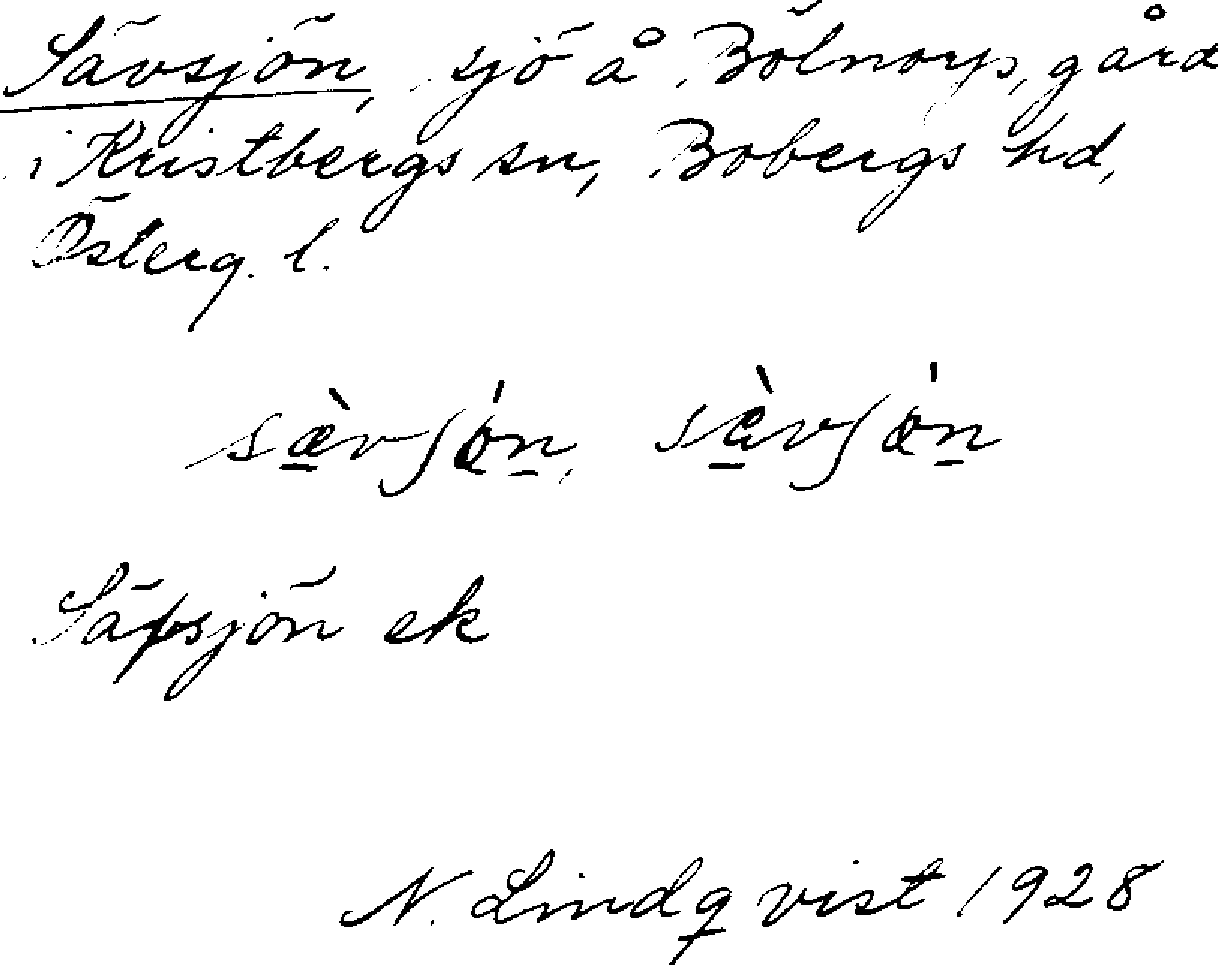 Sävsjön, sjö å Bölnorp, gård
i Kristbergs sn, Bobergs hd,
Österg. l.
Säfsjön ek
N. Lindqvist 1928